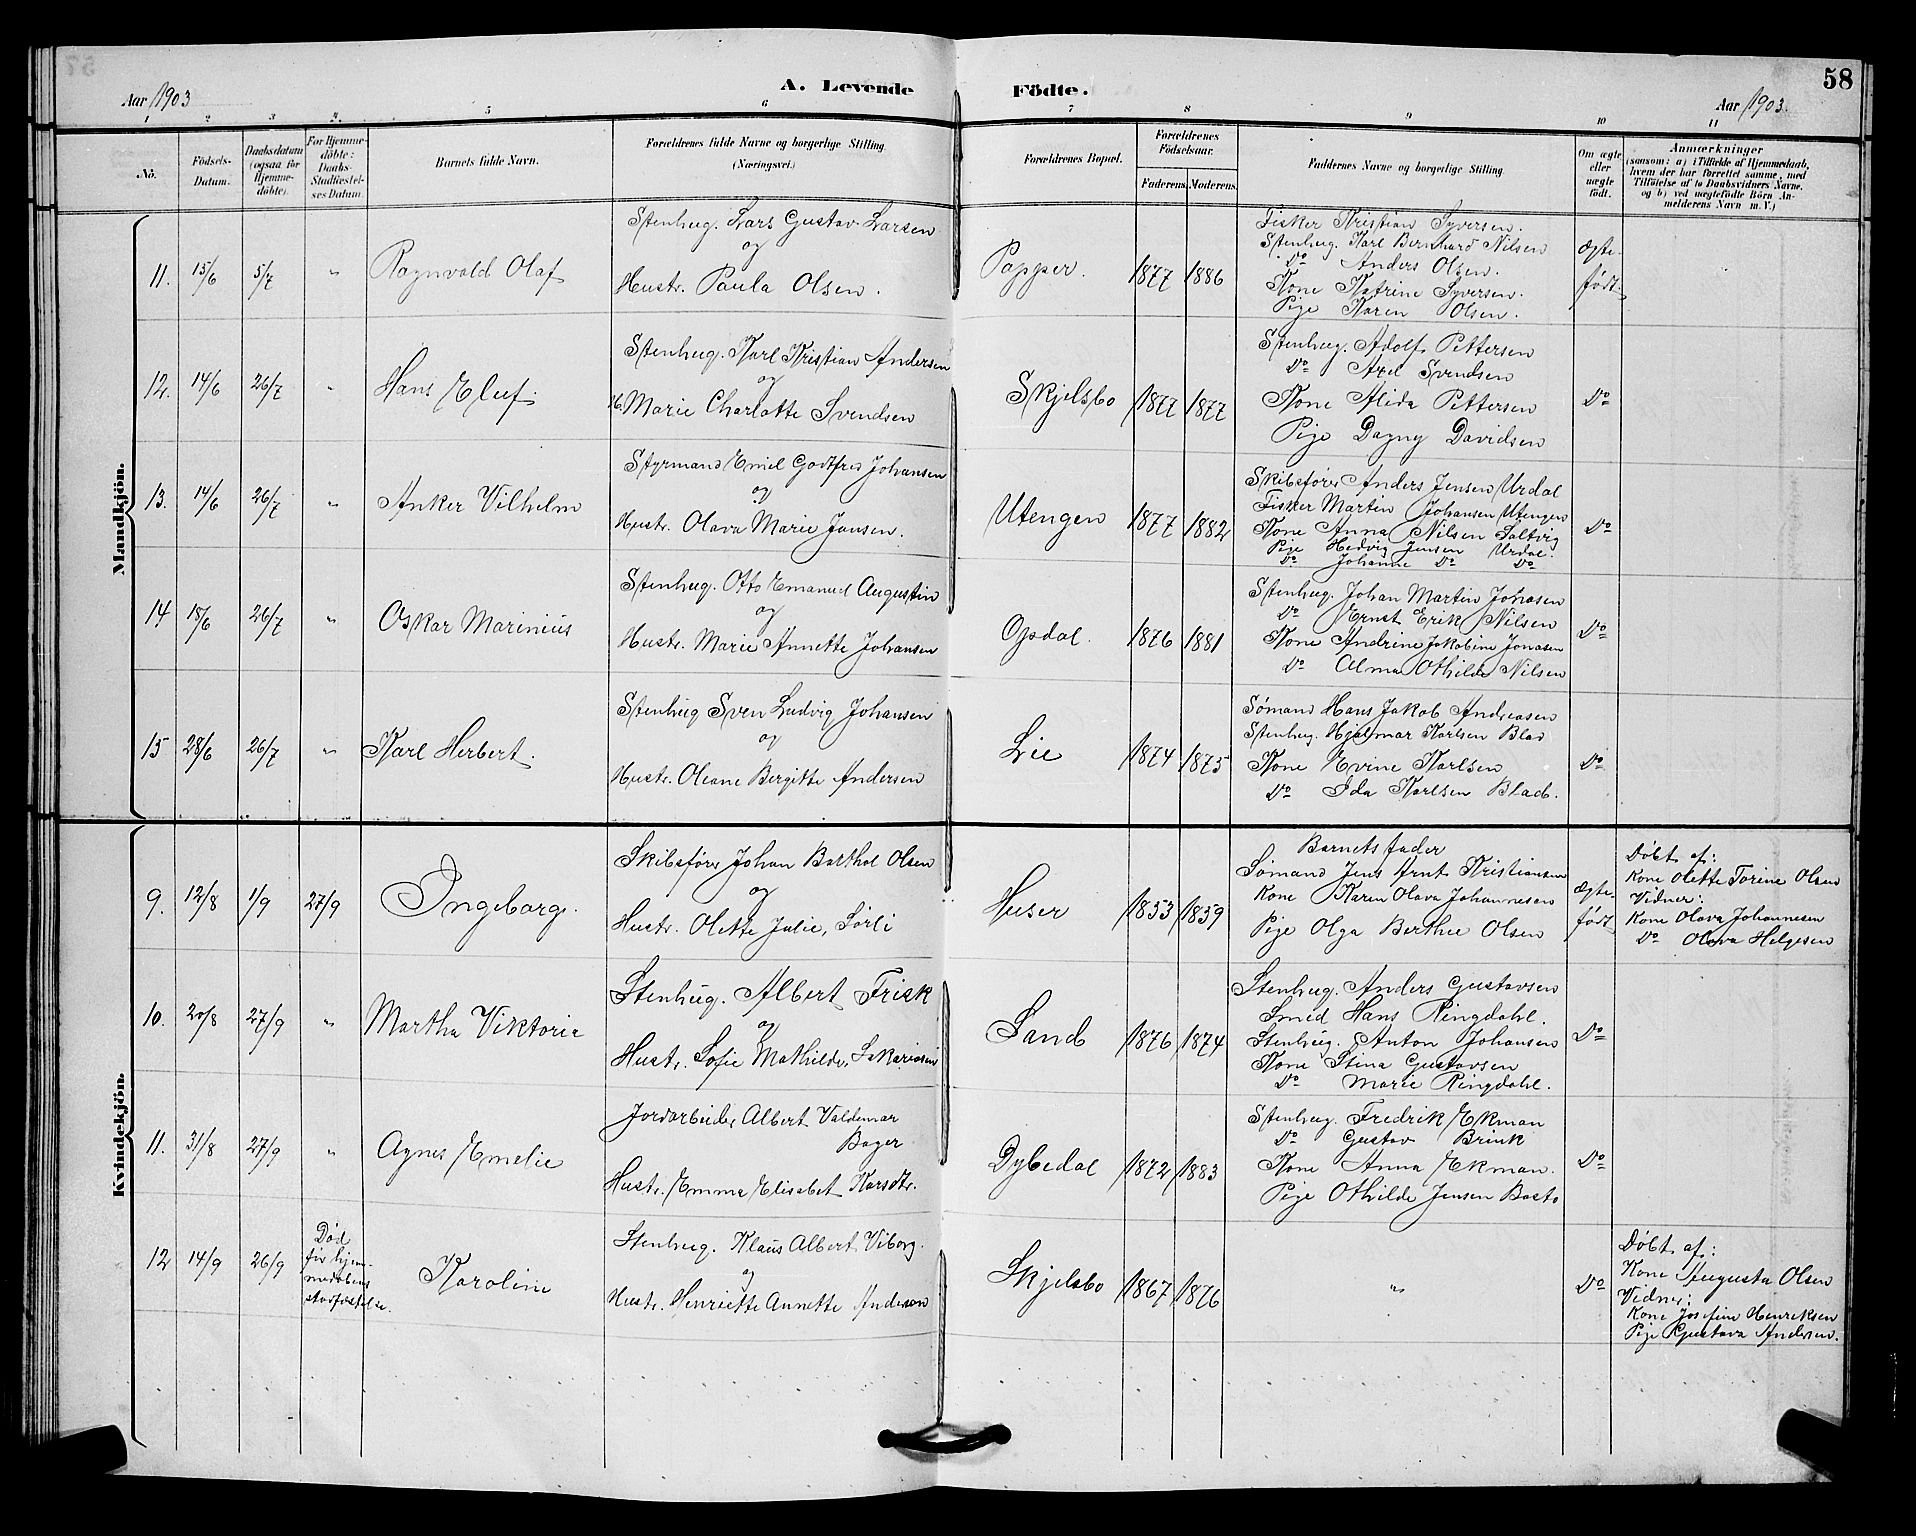 58
Aar 1903
A. Levende Födte.
Aar 1903.
1 2 3 4 5 6 7 8 9 10 11
No.
Födsels-Datum.
Daabsdatum (ogsaa for Hjemme-döbte).
For Hjemme-döbte: Daabs-Stadfæstel-ses Datum
Barnets fulde Navn.
Forældrenes fulde Navne og borgerlige Stilling (Næringsvei.)
Forældrenes Bopæl.
Forældrenes Födselsaar.
Faderens. Moderens.
Faddernes Navne og borgerlige Stilling
Om ægte eller uægte födt.
Anmærkninger
(saasom: a) i Tilfælde af Hjemmedaab,
hvem der har forrettet samme, med
Tilföielse af to Daabsvidners Navne,
og b) ved uægtefödte Börn An-
melderens Navn m. V.)
Mandkjön.
11. 15/6 5/7 " Ragnvald Olaf
Stenhug. Lars Gustav Larsen
og
Hustr. Paula Olsen.
Papper. 1877 1886
Fisker Kristian Syversen.
Stenhug. Karl Bernhard Nilsen
Do Anders Olsen.
Kone Katrine Syversen.
Pige Karen Olsen.
Ægte-
født
12. 14/6 26/7 " Hans Eluf.
Stenhug. Karl Kristian Andersen
og
H. Marie Charlotte Svendsen
Skjelsbo 1877 1877
Stenhug. Adolf Pettersen
Do Axel Svendsen
Kone Alida Pettersen
Pige Dagny Davidsen
Do
13. 14/6 26/7 " Anker Vilhelm
Styrmand Emil Godtfred Johansen
og
Hustr. Olava Marie Jansen.
Utengen 1877 1882
Skibsfører Anders Jensen Urdal
Fisker Martin Johansen Utengen
Kone Anna Nilsen Saltvig
Pige Hedvig Jensen Urdal.
Do Johanne Do Do
Do
14 18/6 26/7 " Oskar Marinius
Stenhug. Otto Emanuel Augustin
og
Hustr. Marie Annette Johansen
Opdal. 1876 1881
Stenhug. Johan Martin Jonasen
Do Ernst Erik Nilsen
Kone Andrine Jakobine Jonasen
Do Alma Othilde Nilsen
Do
15 28/6 26/7 " Karl Herbert.
Stenhug Sven Ludvig Johansen
og
Hustr. Oleane Bergitte Andersen
Lie 1874 1875
Sømand Hans Jakob Andreasen
Stenhug. Hjalmar Karlsen Blad
Kone Evine Karlsen
Do Ida Karlsen Blad.
Do
Kvindekjön.
9. 12/8 1/9 27/9 Ingeborg.
Skibsfører Johan Barthol Olsen
og
Hustr. Olette Julie, Sørli
Huser 1853 1859
Barnets fader
Sømand Jens Arnt Kristiansen
Kone Karen Olava Johannesen
Pige Olga Berthee Olsen
Ægte-
født
Døbt af:
Kone Olette Torine Olsen
Vidner:
Kone Olava Johannesen
Do Olava Helgesen
10. 20/8 27/9 " Martha Viktoria
Stenhug. Albert Frisk
og
Hustr. Sofie Mathilde, Sakariasen
Sand 1876 1874
Stenhug. Anders Gustavsen
Smed Hans Ringdahl.
Stenhug. Anton Johansen
Kone Stina Gustavsen
Do Marie Ringdahl.
Do
11. 31/8 27/9 " Agnes Emelie
Jordarbeider Albert Valdemar
Bager
Hustr. Emma Elisabet Karsdtr.
Dybedal 1872 1883
Stenhug. Fredrik Ekman
Do Gustav Brink
Kone Anna Ekman.
Pige Othilde Jensen Basto
Do
12 14/9 26/9
Død
før hjem-
medabens
stadfæstelse.
Karoline
Stenhug. Klaus Albert Viborg.
og
Hustr. Henriette Annette Anderson
Skjelsbo 1867 1876
"
Do
Døbt af:
Kone Augusta Olsen
Vidner:
Kone Josefine Henriksen
Pige Gustava Andersen.